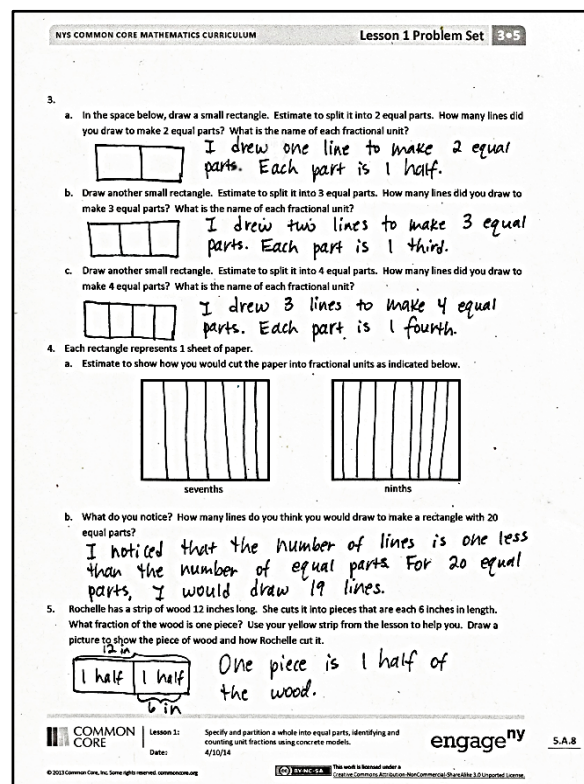 NYS COMMON CORE MATHEMATICS CURRICULUM
Lesson 1 Problem Set 3•5
3.
a. In the space below, draw a small rectangle. Estimate to split it into 2 equal parts. How many lines did
you draw to make 2 equal parts? What is the name of each fractional unit?
I drew one line to make 2 equal
parts. Each part is 1 half.
b. Draw another small rectangle. Estimate to split it into 3 equal parts. How many lines did you draw to
make 3 equal parts? What is the name of each fractional unit?
I drew two lines to make 3 equal
parts. Each part is 1 third.
c. Draw another small rectangle. Estimate to split it into 4 equal parts. How many lines did you draw to
make 4 equal parts? What is the name of each fractional unit?
I drew 3 lines to make 4 equal
parts. Each part is 1 fourth.
4. Each rectangle represents 1 sheet of paper.
a. Estimate to show how you would cut the paper into fractional units as indicated below.
sevenths
ninths
b. What do you notice? How many lines do you think you would draw to make a rectangle with 20
equal parts?
I noticed that the number of lines is one less
than the number of equal parts. For 20 equal
parts, I would draw 19 lines.
5. Rochelle has a strip of wood 12 inches long. She cuts it into pieces that are each 6 inches in length.
What fraction of the wood is one piece? Use your yellow strip from the lesson to help you. Draw a
picture to show the piece of wood and how Rochelle cut it.
12 in
1 half 1 half
6 in
One piece is 1 half of
the wood.
COMMON
CORE
Lesson 1:
Date:
Specify and partition a whole into equal parts, identifying and
counting unit fractions using concrete models.
4/10/14
engage ny
5.A.8
© 2013 Common Core, Inc. Some rights reserved. commoncore.org
(cc) BY-NC-SA
This work is licensed under a
Creative Commons Attribution-NonCommercial-ShareAlike 3.0 Unported License.